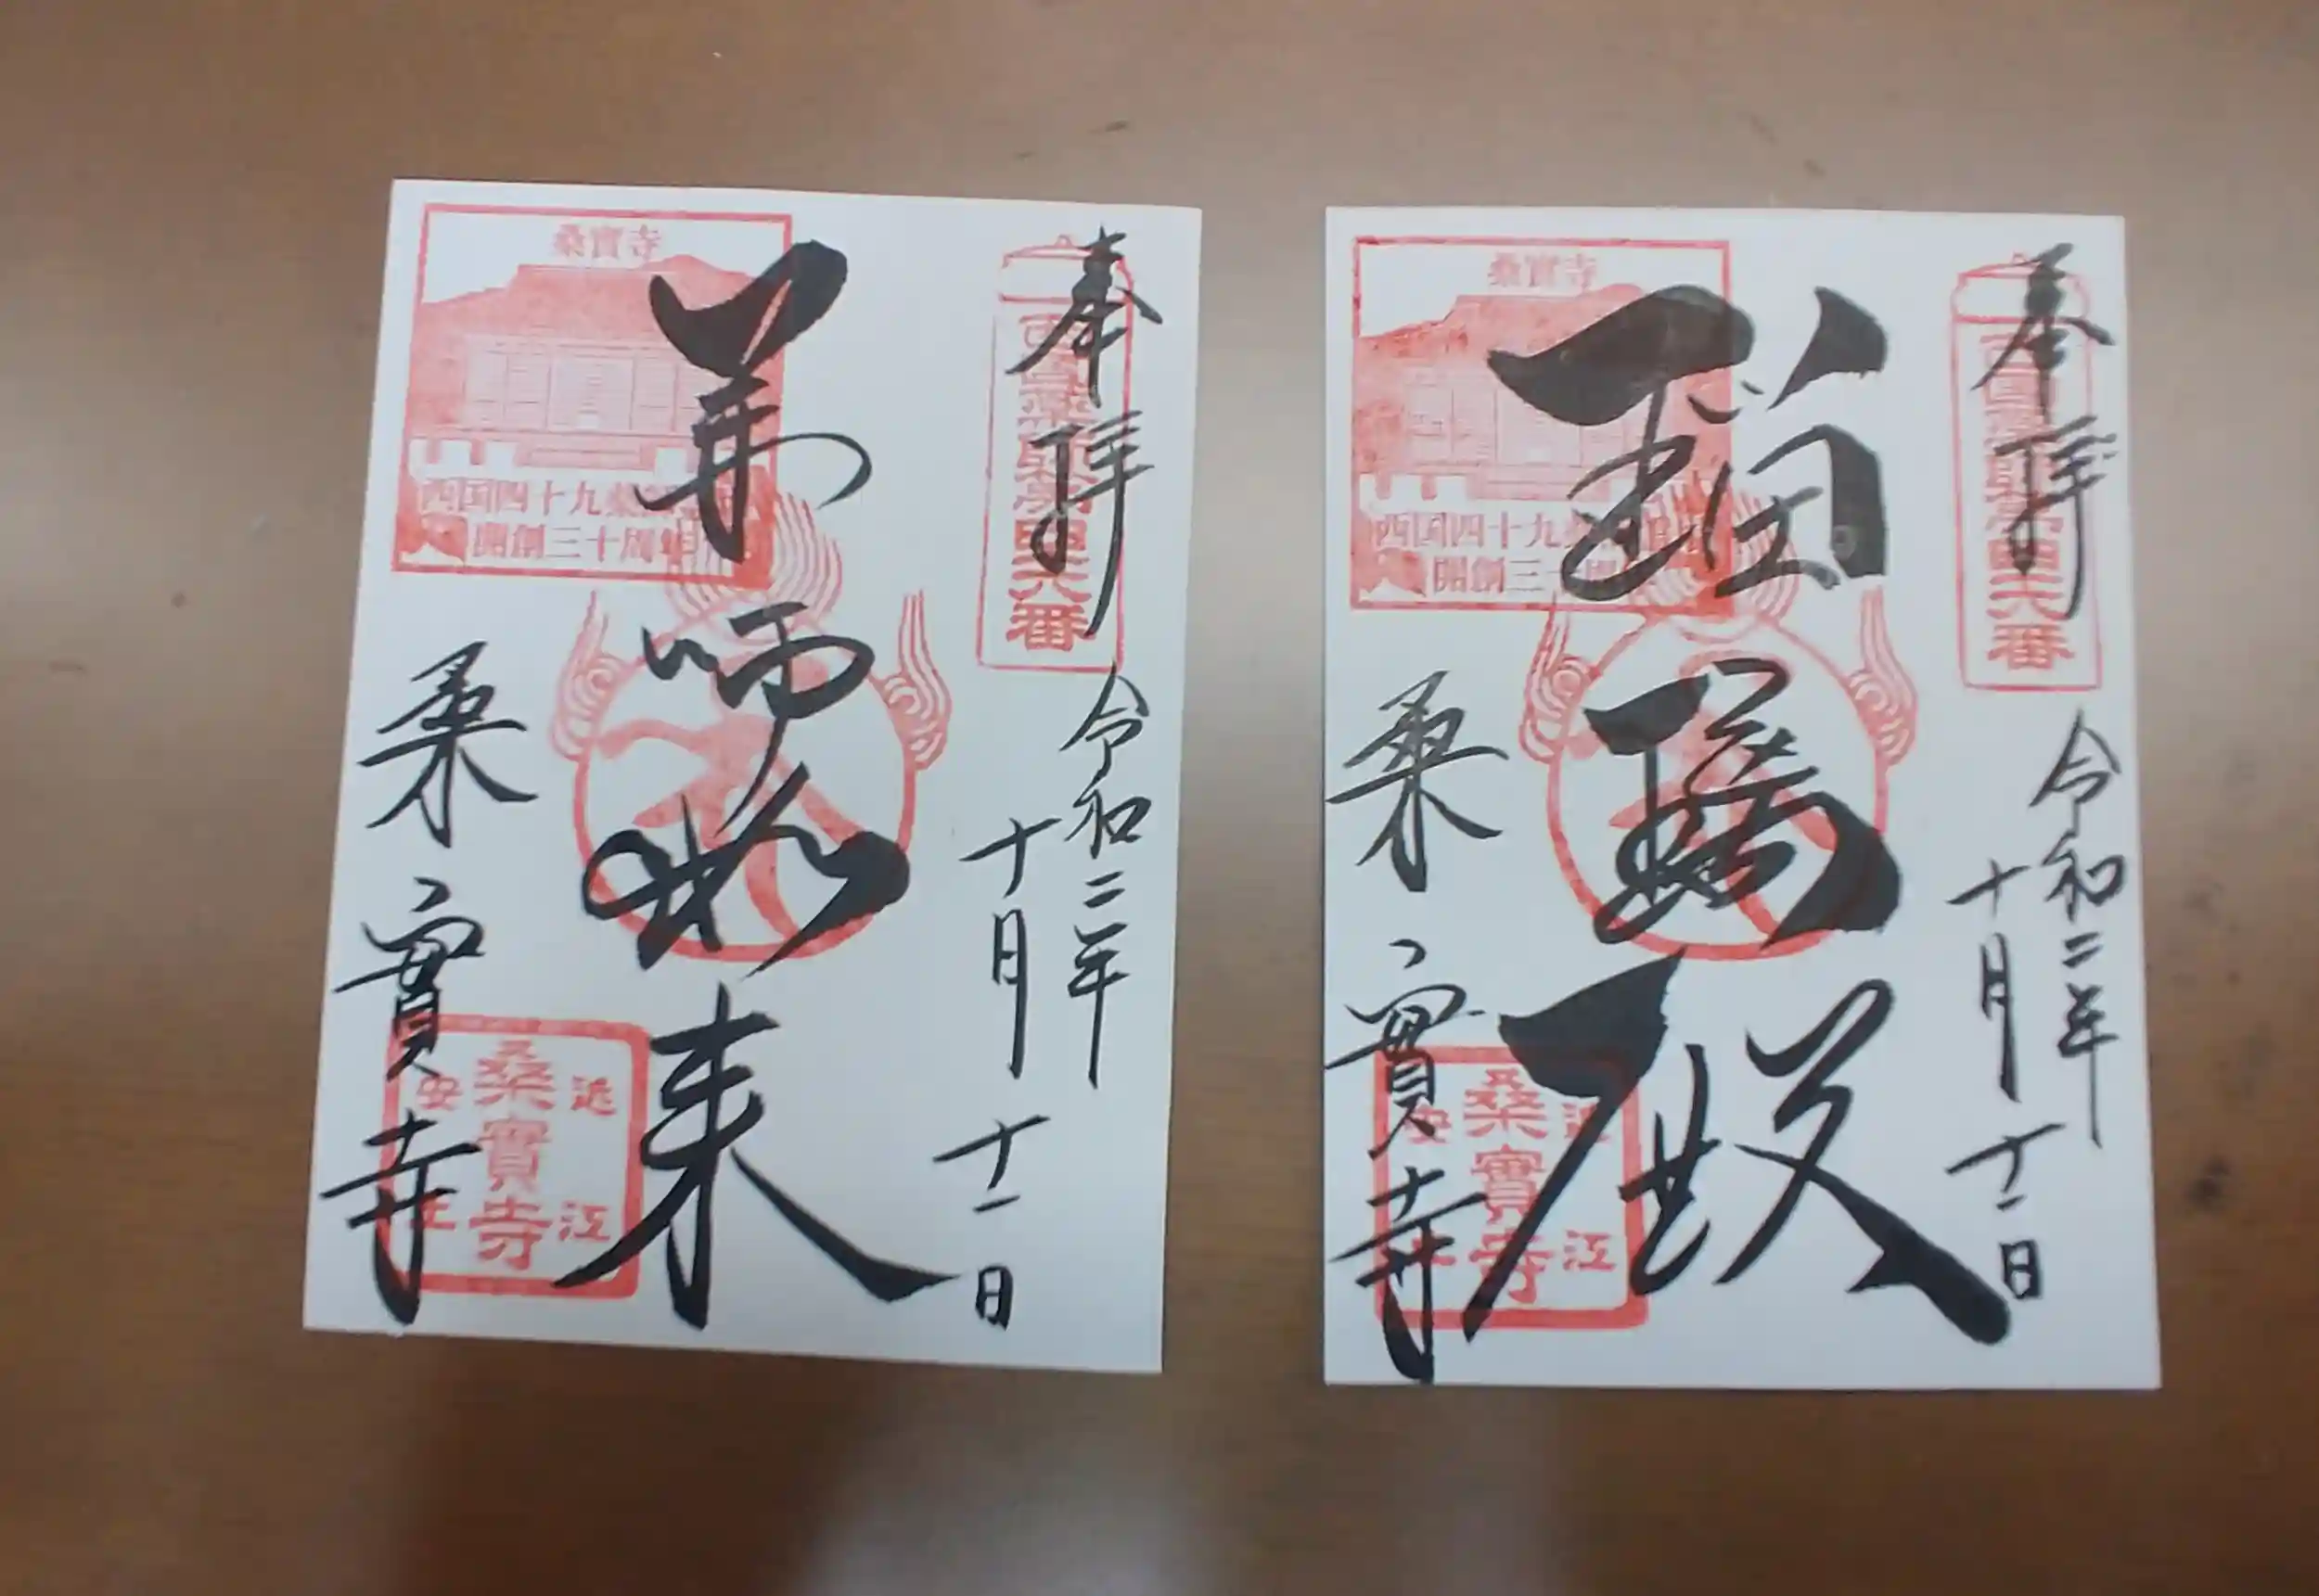 奉拝
西国薬師第四十六番
令和二年
十月十一日
薬師如来
桑實寺
西国四十九薬師霊場
開創三十周年記念
桑實寺
近江
桑實寺
安土
奉拝
西国薬師第四十六番
令和二年
十月十一日
瑠璃殿
桑實寺
西国四十九薬師霊場
開創三十周年
桑實寺
近江
桑實寺
安土